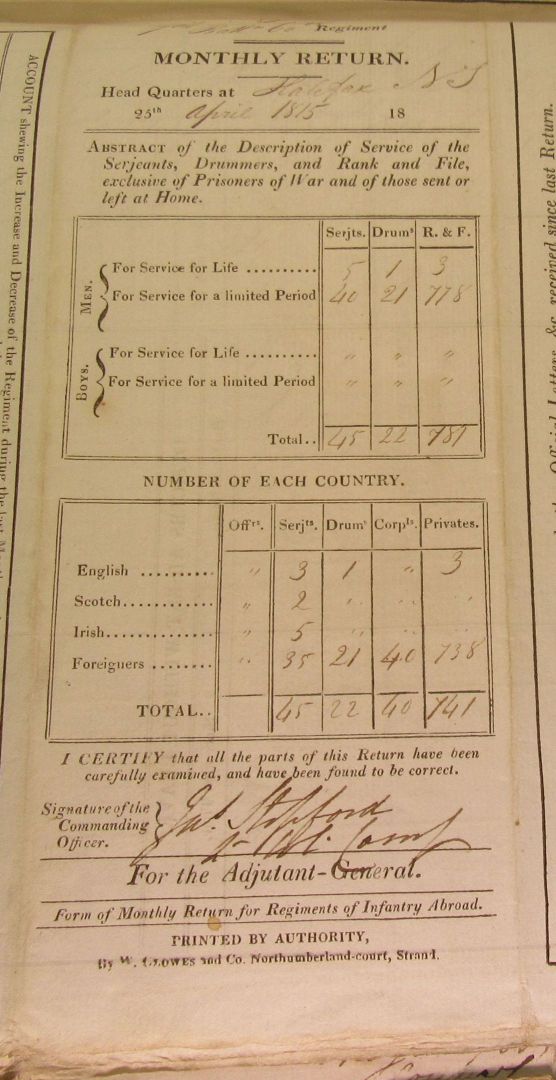 Regiment
MONTHLY RETURN.
Head Quarters at Halifax N S
25th April 1815 18
ABSTRACT of the Description of Service of the
Serjeants, Drummers, and Rank and File,
exclusive of Prisoners of War and of those sent or
left at Home.
Serjts. Drums R. & F.
MEN. For Service for Life .......... 5 1 3
For Service for a limited Period 40 21 778
BOYS. For Service for Life .......... " " "
For Service for a limited Period " " "
Total.. 45 22 781
NUMBER OF EACH COUNTRY.
Offrs. Serjts. Drums Corpls. Privates.
English .......... " 3 1 " 3
Scotch............ " 2 " " "
Irish............. " 5 " " "
Foreiguers ........ " 35 21 40 738
TOTAL.. 45 22 40 741
I CERTIFY that all the parts of this Return have been
carefully examined, and have been found to be correct.
Signature of the
Commanding
Officer.
Stopford
For the Adjutant-General.
Form of Monthly Return for Regiments of Infantry Abroad.
PRINTED BY AUTHORITY,
By W. CLOWES and Co. Northumberland-court, Strand.
ACCOUNT shewing the Increase and Decrease of the Regiment during the last
Official Letters &c. received since last Return.